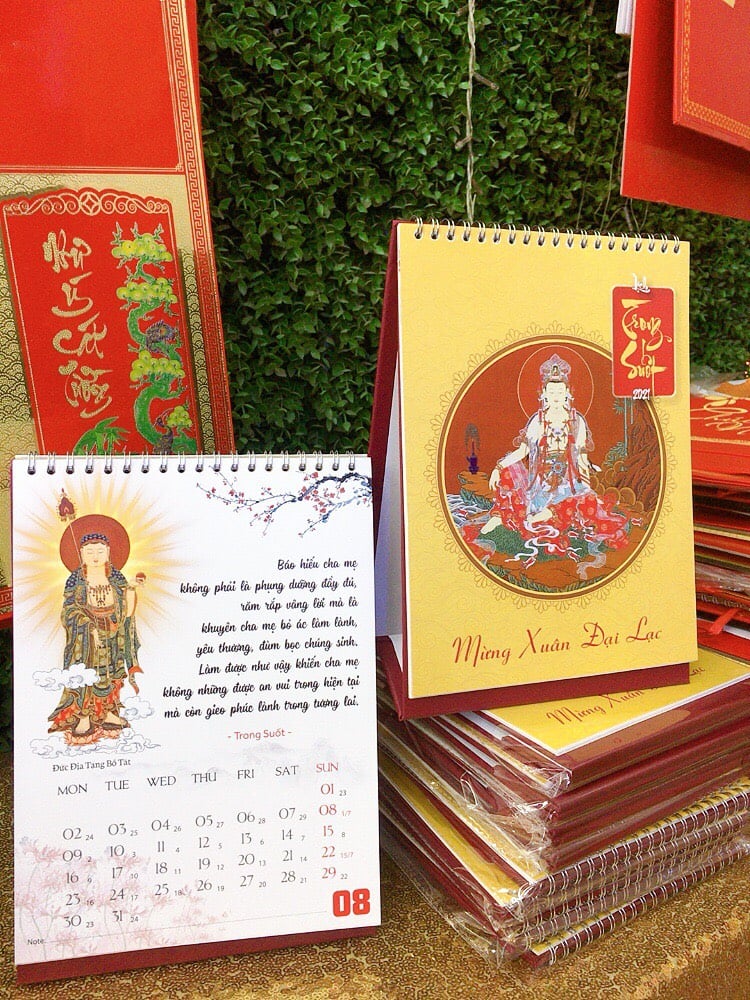 Lịch
Trong
Suốt
2021
Mừng Xuân Đại Lạc
Mừng Xuân
Báo hiếu cha mẹ
không phải là phụng dưỡng đầy đủ,
răm rắp vâng lời mà là
khuyên cha mẹ bỏ ác làm lành,
yêu thương, đùm bọc chúng sinh.
Làm được như vậy khiến cha mẹ
không những được an vui trong hiện tại
mà còn gieo phúc lành trong tương lai.
- Trong Suốt -
Đức Địa Tạng Bồ Tát
MON TUE WED THU FRI SAT SUN
01 23
02 24 03 25 04 26 05 27 06 28 07 29 08 1/7
09 2 10 3 11 4 12 5 13 6 14 7 15 8
16 9 17 10 18 11 19 12 20 13 21 14 22 15/7
23 16 24 17 25 18 26 19 27 20 28 21 29 22
30 23 31 24
08
Note: